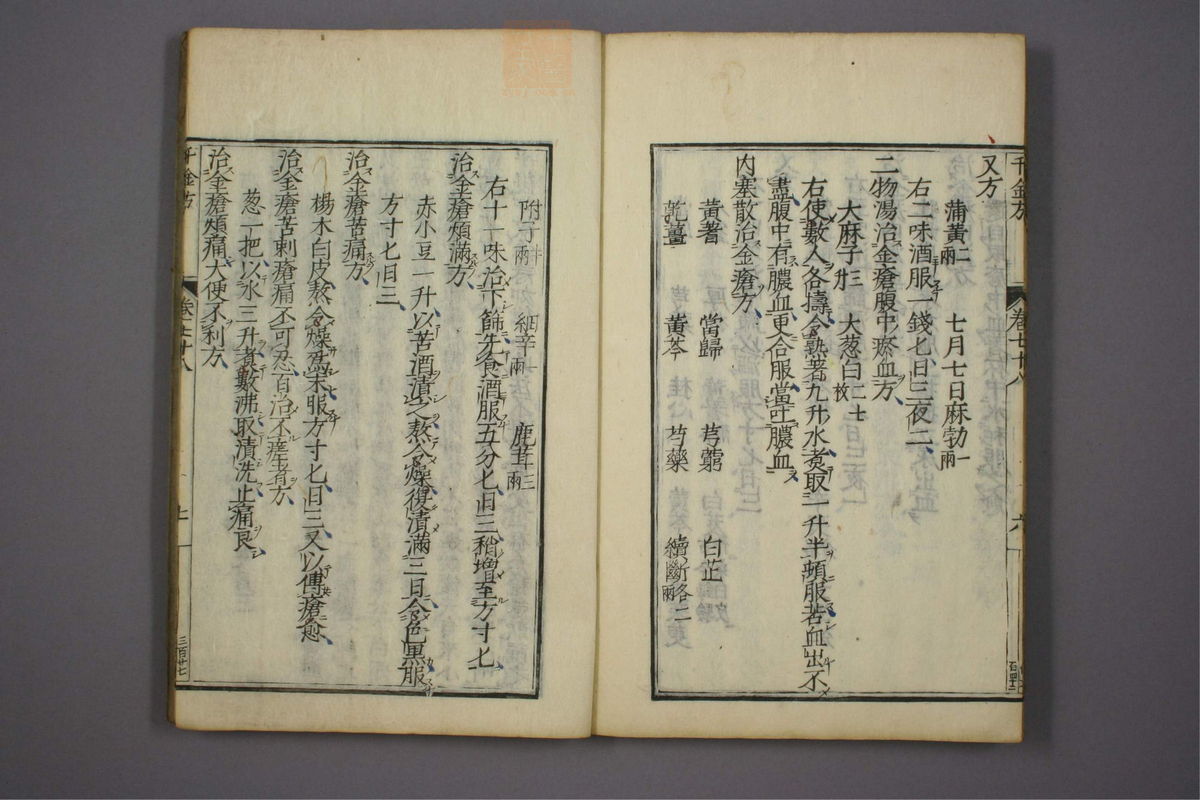 千金方
卷七十八
六
又方
蒲黃二兩 七月七日麻勃一兩
右二味酒服一錢匕日三夜二
二物湯治金瘡腹中瘀血方
大麻子三升 大葱白二七枚
右使數人各擣令熟著九升水煮取一升半頓服若血出不
盡腹中有膿血更合服當吐膿血
內塞散治金瘡方
黃蓍 當歸 芎藭 白芷
乾薑 黃芩 芍藥 續斷各二兩
附子半兩 細辛一兩 鹿茸三兩
右十一味治下篩先食酒服五分匕日三稍增至方寸匕
治金瘡煩滿方
赤小豆一升以苦酒漬之熬令燥復漬滿三日令色黑服
方寸匕日三
治金瘡苦痛方
楊木白皮熬令燥爲末服方寸匕日三又以傅瘡愈
治金瘡苦刺瘡痛不可忍百治不瘥者方
葱一把以水三升煮數沸取漬洗止痛良
治金瘡煩痛大便不利方
千金方
卷七十八
七
三百廿七